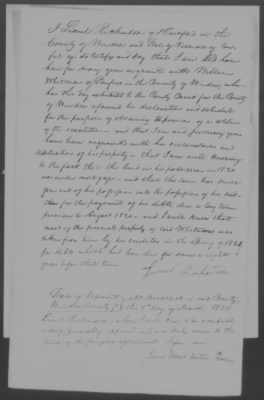 I Lionel Richardson of Hartford in the
County of Windsor and State of Vermont of law-
ful age do testify and say that I am and have
been for many years acquainted with William
Whitmore of Pomfret in the County of Windsor, who
has this day exhibited to the County Court for the County
of Windsor aforesaid his declaration and schedule
for the purpose of obtaining a pension as a soldier
of the revolution - and that I am and for many years
have been acquainted with his circumstances and
situation of his property - that I am well knowing
to the fact that the land in his possession in 1820
was under mortgage - and that the same has since
gone out of his possession into the possession of his
for the payment of his debts, due a long time
previous to August 1820 - and I well know that
most of the personal property of said Whitmore was
taken from him by his creditors in the Spring of 1820
for debts which had been due for some
years before that time
Lionel Richardson
State of Vermont, At Woodstock in said County
Windsor County Ss. this day of March
Lionel Richardson
and was duly sworn to the
truth of the foregoing affidavit before me
Justice Peace